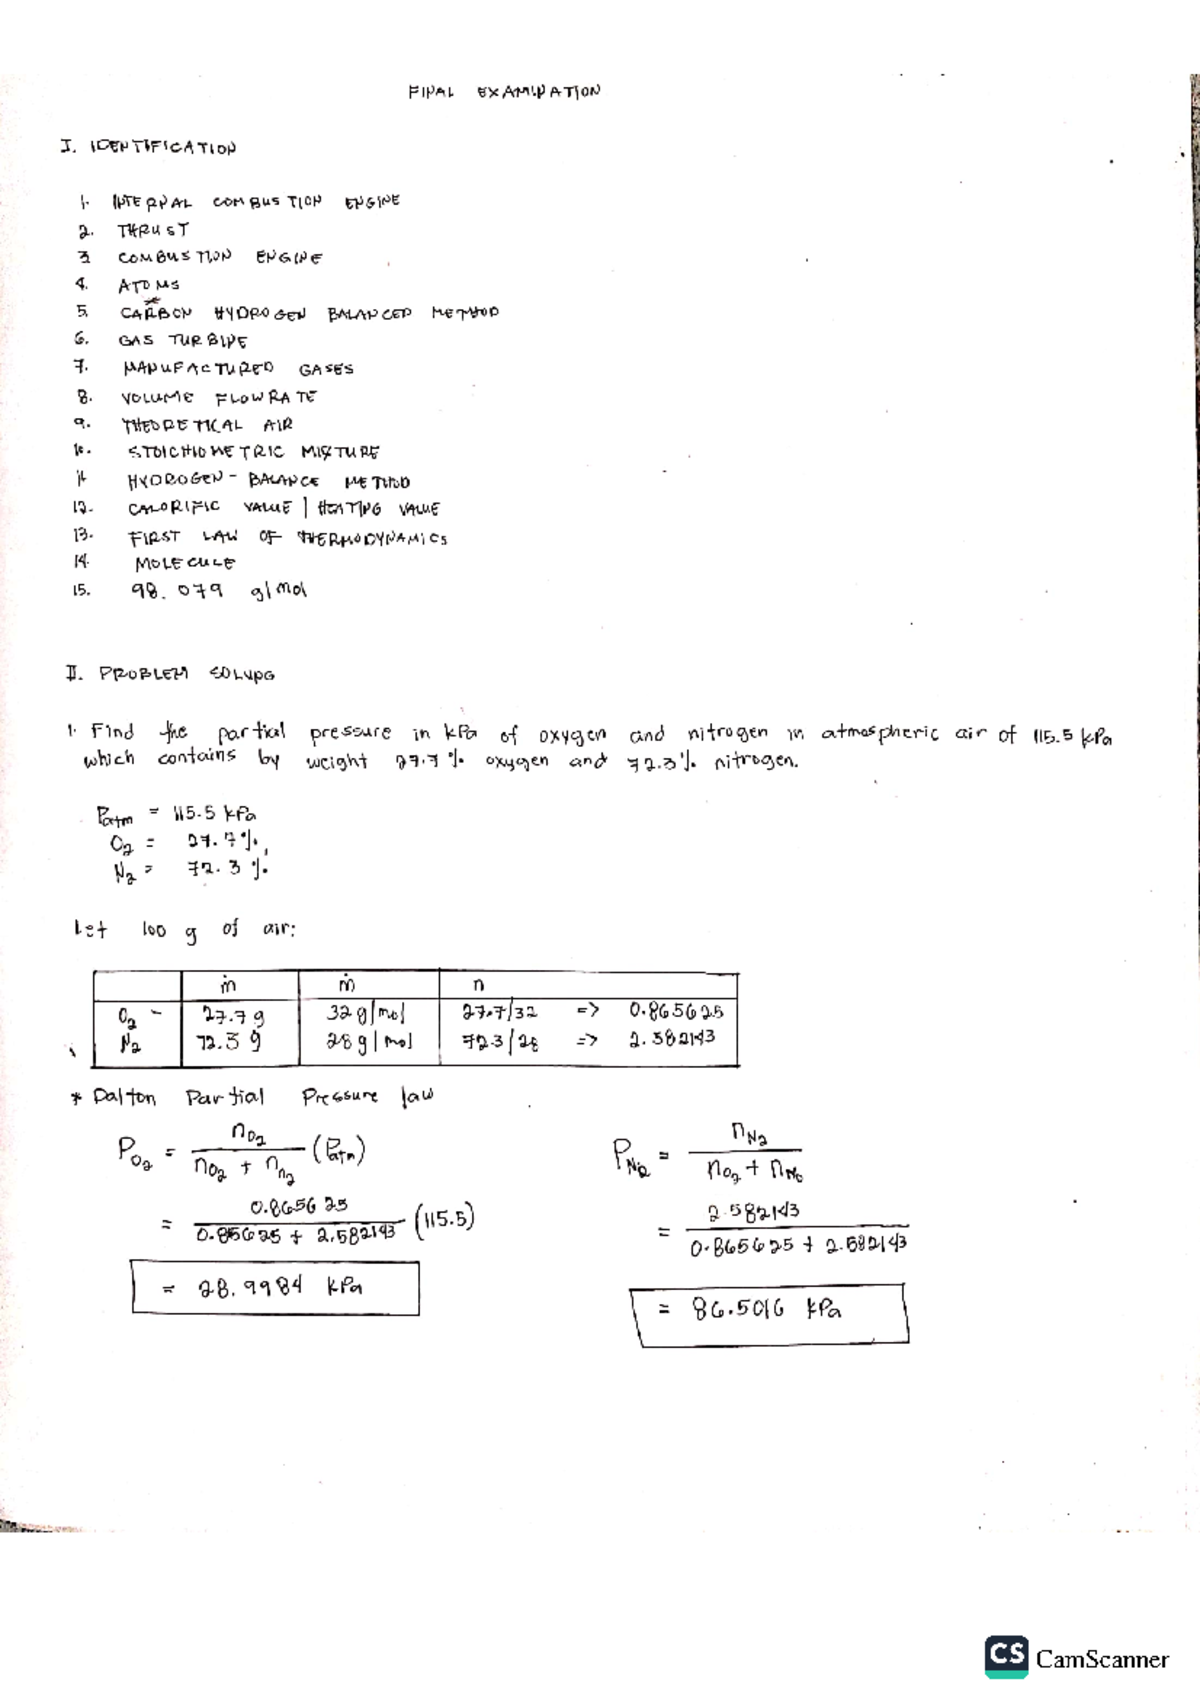 FINAL EXAMINATION
I. IDENTIFICATION
1. INTERNAL COMBUSTION ENGINE
2. THRUST
3 COMBUSTION ENGINE
4. ATOMS
5. CARBON HYDROGEN BALANCED METHOD
6. GAS TURBINE
7. MANUFACTURED GASES
8. VOLUME FLOWRATE
9. THEORETICAL AIR
10. STOICHIOMETRIC MIXTURE
11 HYDROGEN - BALANCE METHOD
12. CALORIFIC VALUE | HEATING VALUE
13. FIRST LAW OF THERMODYNAMICS
14. MOLECULE
15. 98.079 g/mol
II. PROBLEM SOLVNG
1. Find the partial pressure in kPa of oxygen and nitrogen in atmospheric air of 115.5 kPa
which contains by weight 27.7 % oxygen and 72.3 % nitrogen.
Patm = 115.5 kPa
O2 = 27.7 %,
N2 = 72.3 %
Let 100 g of air:
ṁ ṁ n
O2 - 27.7 g 32 g/mol 27.7/32 => 0.865625
N2 72.3 g 28 g/mol 72.3/28 => 2.582143
* Dalton Partial Pressure law
PO2 = nO2 / nO2 + nn2 (Patm) PN2 = nN2 / nO2 + nN2
= 0.865625 / 0.85625 + 2.582143 (115.5) = 2.582143 / 0.865625 + 2.582143
= 28.9984 kPa = 86.5016 kPa
CS CamScanner